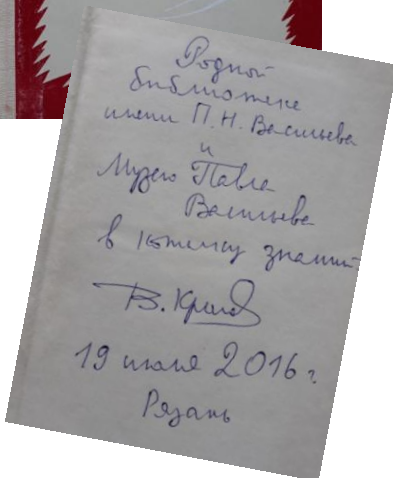 Родной
библиотеке
имени П.Н. Васильева
и
Музею Павла
Васильева
в копилку знаний
19 июля 2016 г.
Рязань